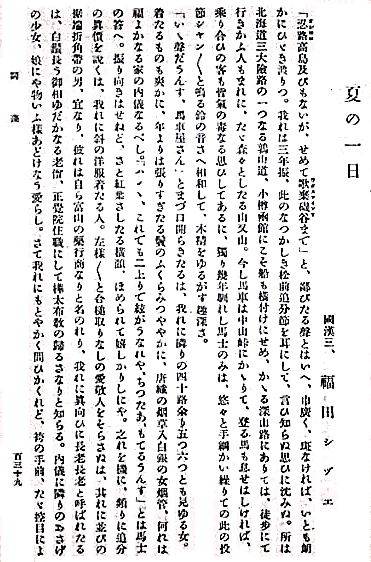 夏の一日
國漢三、福田シヅエ
「忍路高島及びもないが、せめて歌棄磯谷まで」と、鄙びたる聲とはいへ、巾廣く、斑なければ、いとも朗
かにひゞき渡りつ。我れは三年振、此のなつかしき松前追分節を耳にして、言ひ知らぬ思ひに沈みぬ。所は
北海道三大險路の一つなる鶉山道、小樽函館にこそ船も横付けにせめ、かゝる深山路にありては、徒歩にて
行きかふ人もまれに、たゞ森々としたる山又山。今し馬車は中山峠にかゝりて、登る馬も息せはしければ、
乗り合ひの客も皆氣の毒なる思ひしてあるに、獨り幾年馴れし馬士のみは、悠々と手綱かい繰りての此の投
節シャン〳〵と鳴る鈴の音さへ相和して、木精をゆるがす趣深さ。
「いゝ聲だうんす、馬車屋さん」とまづ口開らきたるは、我れに隣りの四十路余り五つ六つとも見ゆる女。
着たるものも爽かに、年よりは張りすぎたる鬢のふくらみつややかに、唐繻の烟草入白銀の女烟管、何れは
福よかなる家の内儀なるべし。「ハヽヽ、これでも二上りで絃がうなれや、ちつたあ、もてるうんす」とは馬士
の答へ。振り向きはせねど、さと紅葉さしたる横顔、ほめられて嬉しかりしにや。之れを機に、頻りに追分
の眞價を說くは、我れに斜の洋服着たる人。左樣〳〵と合槌取りなしの愛敬人をそらさぬは、其れに並びの
据端折角帶の男、宜なり、彼れは自ら富山の藥行商なりと名のれり、我れに眞向ひに長老長老と呼ばれたる
は、白鬚長う御和ゆだかなる老僧、正覺院住職にして樺太布教の歸るさなりと知らる。内儀に隣りのおさげ
の少女、娘にや物いふ樣あどけなう愛らし。さて我れにもとやかく問ひかくれど、袴の手前、たゞ控目によ
詞藻
百三十九